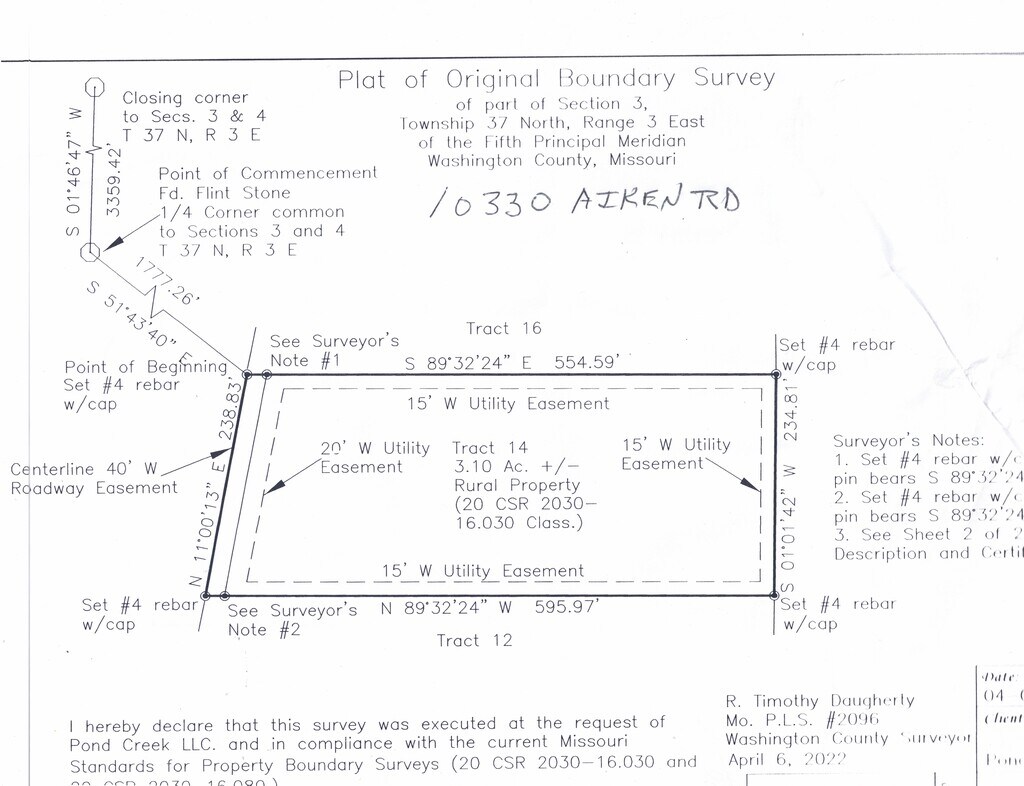 Plat of Original Boundary Survey
of part of Section 3,
Township 37 North, Range 3 East
of the Fifth Principal Meridian
Washington County, Missouri
10330 AIKEN RD
Closing corner
to Secs. 3 & 4
T 37 N, R 3 E
S 01°46'47" W
3359.42'
Point of Commencement
Fd. Flint Stone
1/4 Corner common
to Sections 3 and 4
T 37 N, R 3 E
1777.26'
S 51°43'40" E
Tract 16
See Surveyor's
Note #1
S 89°32'24" E 554.59'
Set #4 rebar
w/cap
Point of Beginning
Set #4 rebar
w/cap
N 11°00'13" E 238.83'
15' W Utility Easement
20' W Utility
Easement
Tract 14
3.10 Ac. +/-
Rural Property
(20 CSR 2030-
16.030 Class.)
15' W Utility
Easement
S 01°01'42" W 234.81'
Centerline 40' W
Roadway Easement
15' W Utility Easement
Surveyor's Notes:
1. Set #4 rebar w/c
pin bears S 89°32'24
2. Set #4 rebar w/
pin bears S 89°32'24
3. See Sheet 2 of 2
Description and Certif
Set #4 rebar
w/cap
See Surveyor's
Note #2
N 89°32'24" W 595.97'
Set #4 rebar
w/cap
Tract 12
I hereby declare that this survey was executed at the request of
Pond Creek LLC. and in compliance with the current Missouri
Standards for Property Boundary Surveys (20 CSR 2030-16.030 and
20 CSR 2030-16.080.)
R. Timothy Daugherty
Mo. P.L.S. #2096
Washington County Surveyor
April 6, 2022
Date:
04
Client